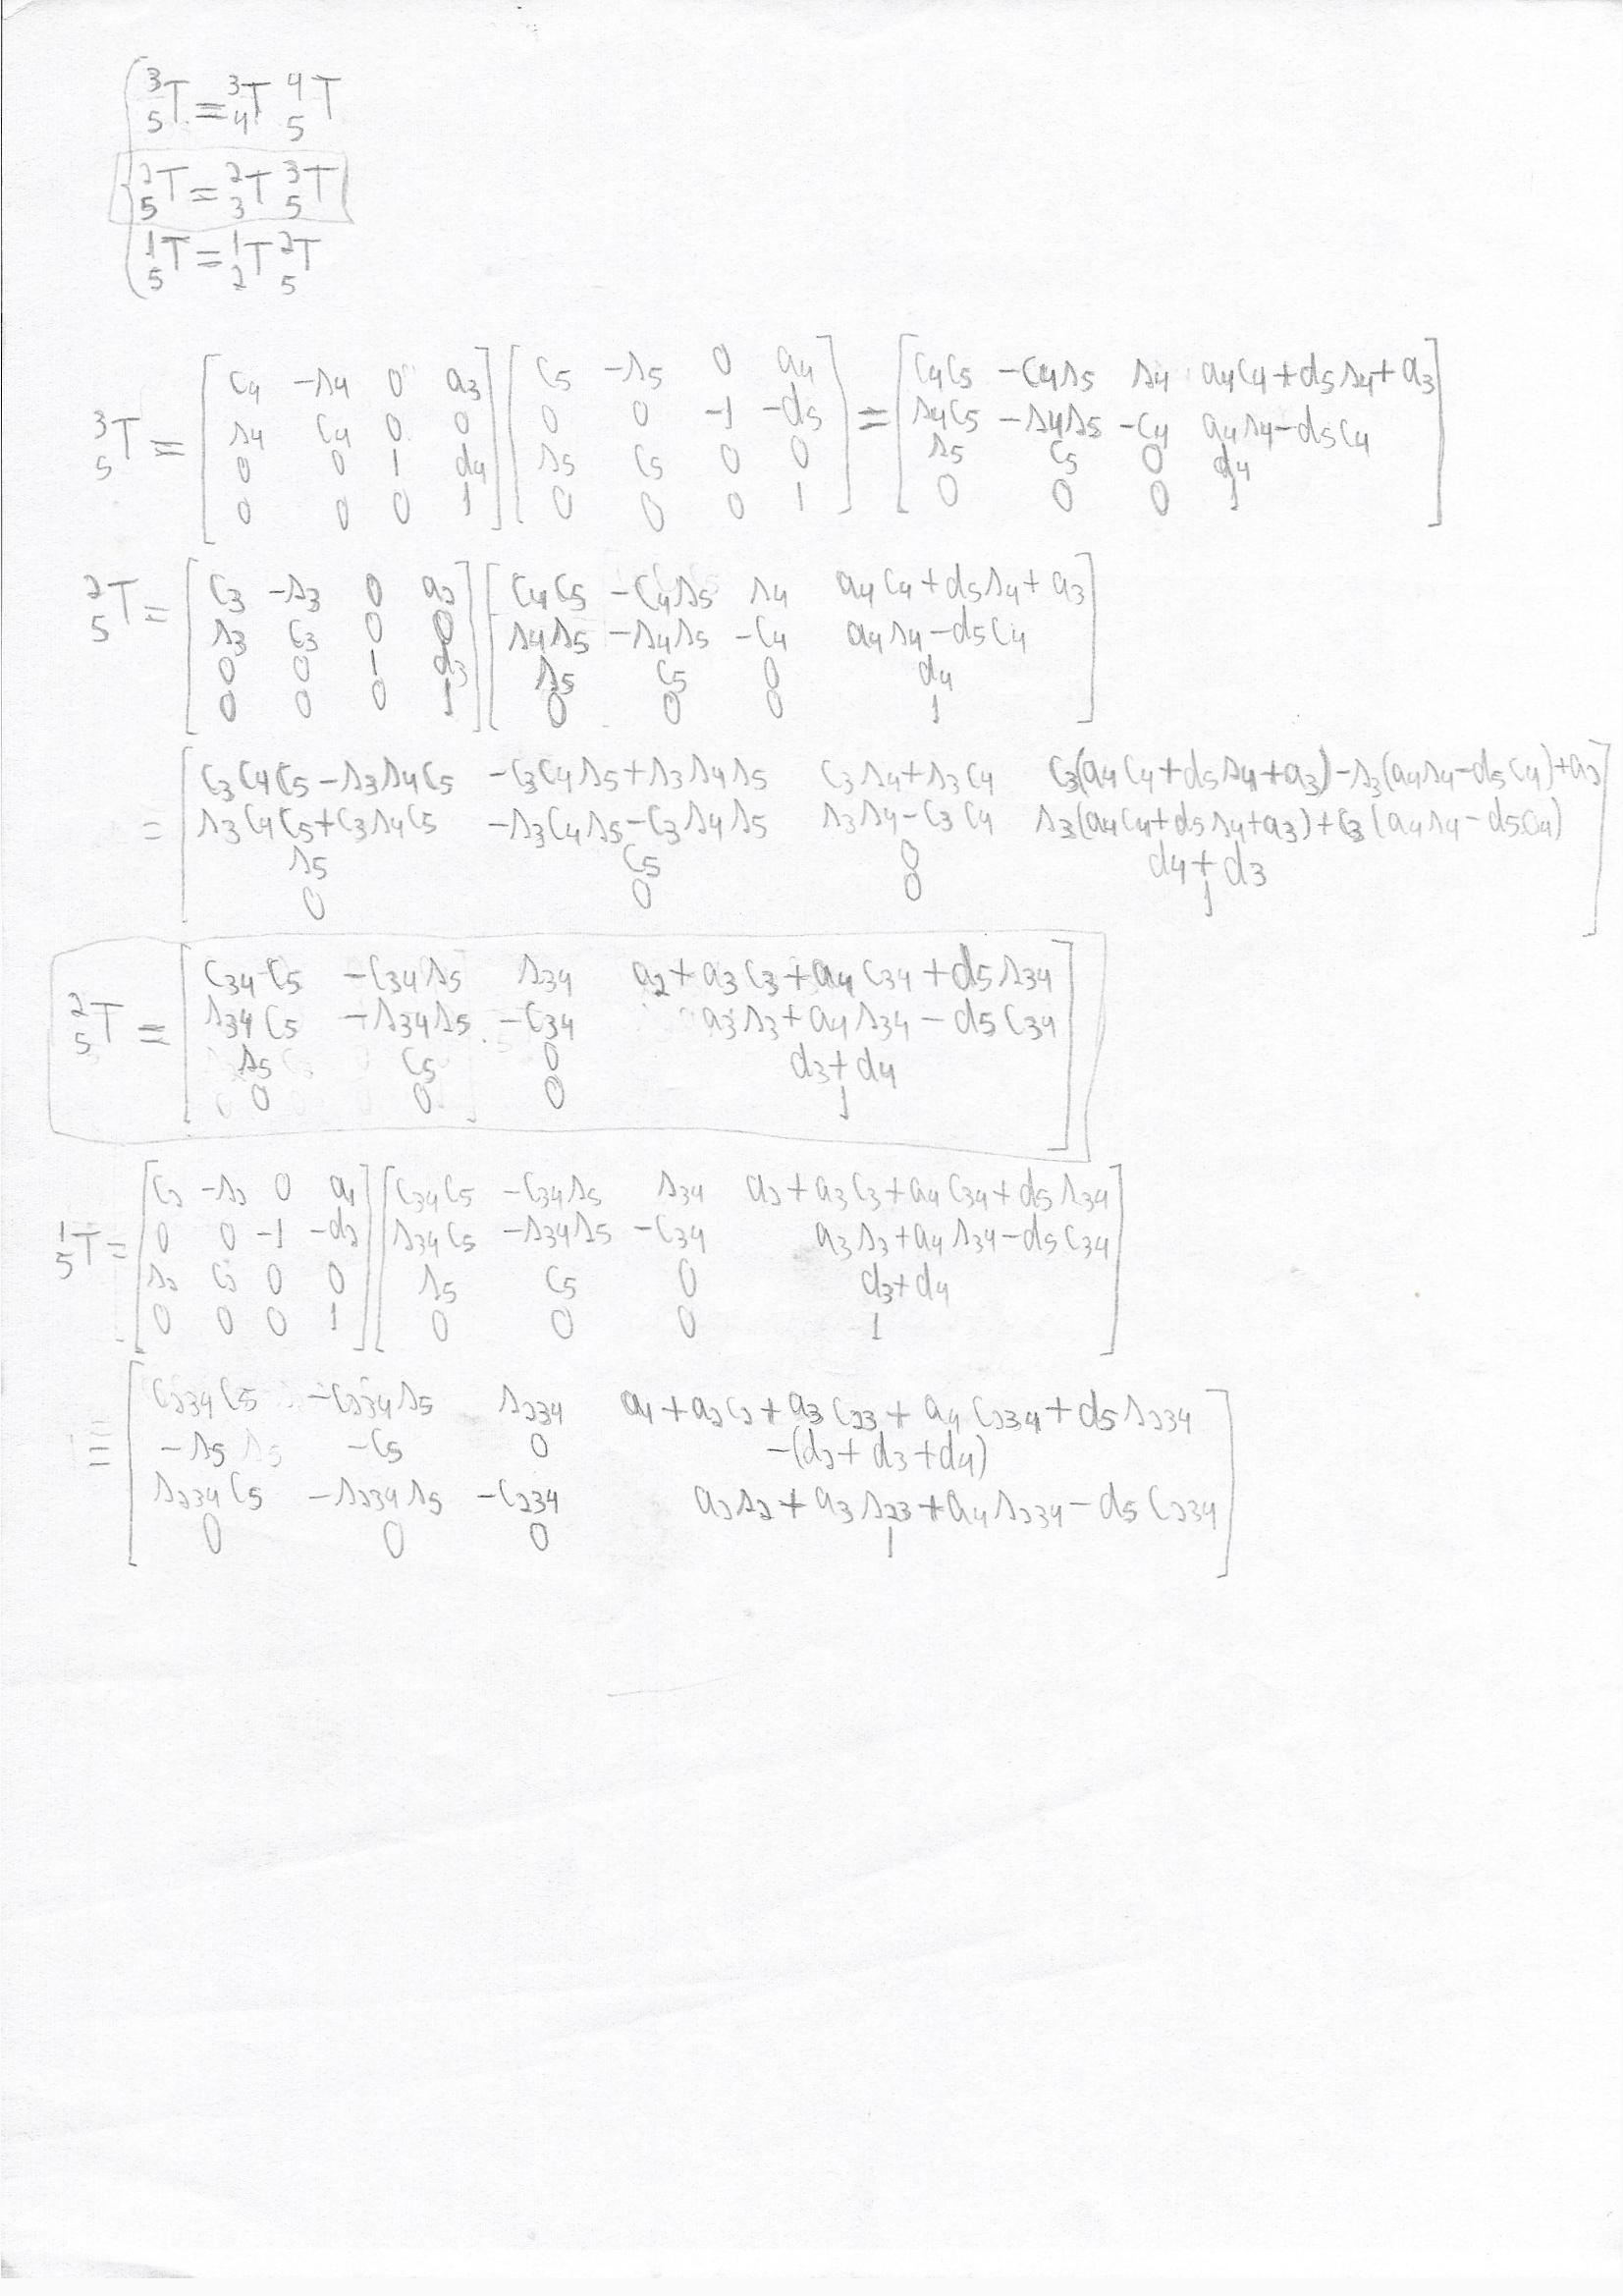 ³₅T = ³₄T ⁴₅T
²₅T = ²₃T ³₅T
¹₅T = ¹₂T ²₅T
³₅T = [c4 -s4 0 a3] [c5 -s5 0 a4] = [c4c5 -c4s5 s4 a4c4+d5s4+a3]
[s4 c4 0 0] [0 0 -1 -d5] [s4c5 -s4s5 -c4 a4s4-d5c4]
[0 0 1 d4] [s5 c5 0 0] [s5 c5 0 d4]
[0 0 0 1] [0 0 0 1] [0 0 0 1]
²₅T = [c3 -s3 0 a2] [c4c5 -c4s5 s4 a4c4+d5s4+a3]
[s3 c3 0 0] [s4s5 -s4s5 -c4 a4s4-d5c4]
[0 0 1 d3] [s5 c5 0 d4]
[0 0 0 1] [0 0 0 1]
= [c3c4c5-s3s4c5 -c3c4s5+s3s4s5 c3s4+s3c4 c3(a4c4+d5s4+a3)-s3(a4s4-d5c4)+a2]
[s3c4c5+c3s4c5 -s3c4s5-c3s4s5 s3s4-c3c4 s3(a4c4+d5s4+a3)+c3(a4s4-d5c4)]
[s5 c5 0 d4+d3]
[0 0 0 1]
²₅T = [c34c5 -c34s5 s34 a2+a3c3+a4c34+d5s34]
[s34c5 -s34s5 -c34 a3s3+a4s34-d5c34]
[s5 c5 0 d3+d4]
[0 0 0 1]
¹₅T = [c2 -s2 0 a1] [c34c5 -c34s5 s34 a2+a3c3+a4c34+d5s34]
[0 0 -1 -d2] [s34c5 -s34s5 -c34 a3s3+a4s34-d5c34]
[s2 c2 0 0] [s5 c5 0 d3+d4]
[0 0 0 1] [0 0 0 1]
= [c234c5 -c234s5 s234 a1+a2c2+a3c23+a4c234+d5s234]
[-s5 -c5 0 -(d2+d3+d4)]
[s234c5 -s234s5 -c234 a2s2+a3s23+a4s234-d5c234]
[0 0 0 1]